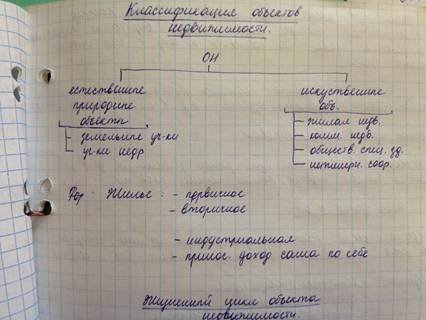 Классификация объектов
недвижимости.
ОН
естественные
природные
объекты
- земельные уч-ки
- уч-ки недр
искуственные
об.
- жилая недв.
- комм. недв.
- обществ. спец. зд.
- инженерн. соор.
Жилье: - первичное
- вторичное
- индустриальная
- принос. доход сама по себе
Жизненный цикл объекта
недвижимости.